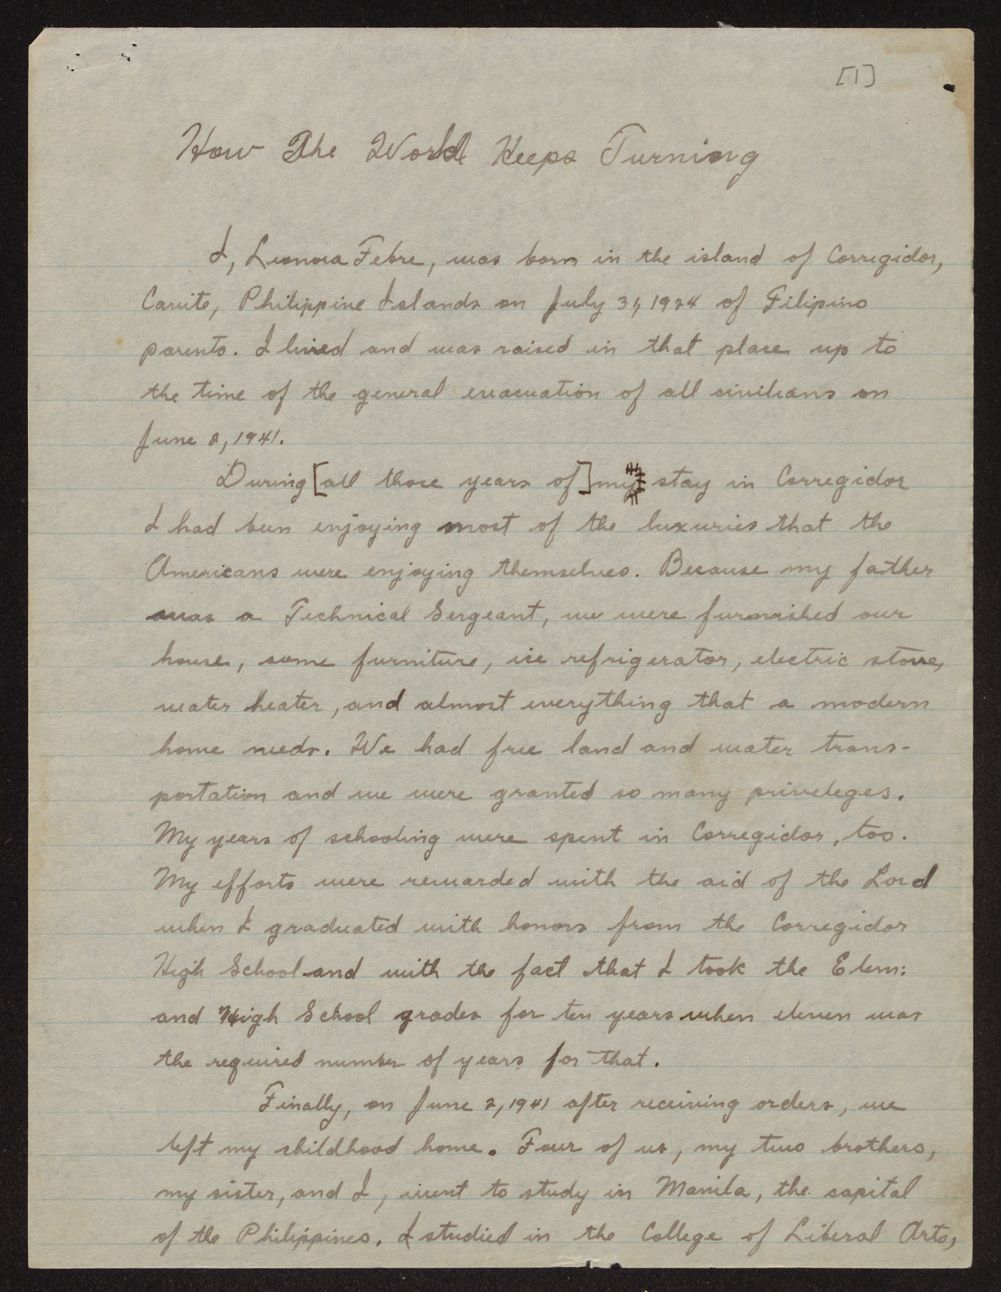 [1]
How The World Keeps Turning
I, Leonora Febre, was born in the island of Corregidor,
Cavite, Philippine Islands on July 31, 1924 of Filipino
parents. I lived and was raised in that place up to
the time of the general evacuation of all civilians on
June 2, 1941.
During [all those years of] my stay in Corregidor
I had been enjoying most of the luxuries that the
Americans were enjoying themselves. Because my father
was a Technical Sergeant, we were furnished our
house, some furniture, ice refrigerator, electric stove,
water heater, and almost everything that a modern
home needs. We had free land and water trans-
portation and we were granted so many priveleges.
My years of schooling were spent in Corregidor, too.
My efforts were rewarded with the aid of the Lord
when I graduated with honors from the Corregidor
High School and with the fact that I took the Elem.
and High School grades for ten years when eleven was
the required number of years for that.
Finally, on June 2, 1941 after receiving orders, we
left my childhood home. Four of us, my two brothers,
my sister, and I, went to study in Manila, the capital
of the Philippines. I studied in the College of Liberal Arts,